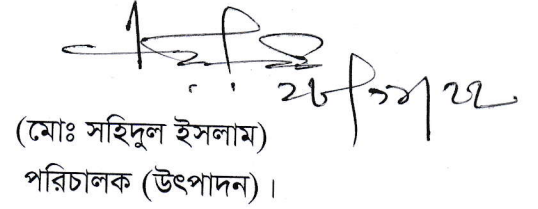 ২৮/১১/২২
(মোঃ সহিদুল ইসলাম)
পরিচালক (উৎপাদন) ।